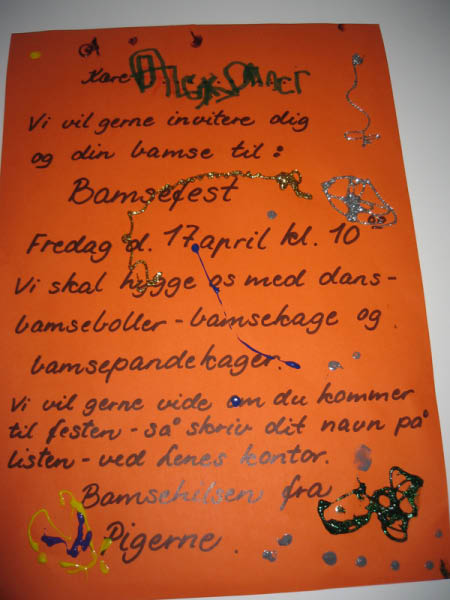 Kære
Vi vil gerne invitere dig
og din bamse til:
Bamsefest
Fredag d. 17 april kl. 10
Vi skal hygge os med dans-
bamseboller - bamsekage og
bamsepandekager.
Vi vil gerne vide om du kommer
til festen - så skriv dit navn på
listen - ved Lenes kontor.
Bamsehilsen fra
Pigerne.